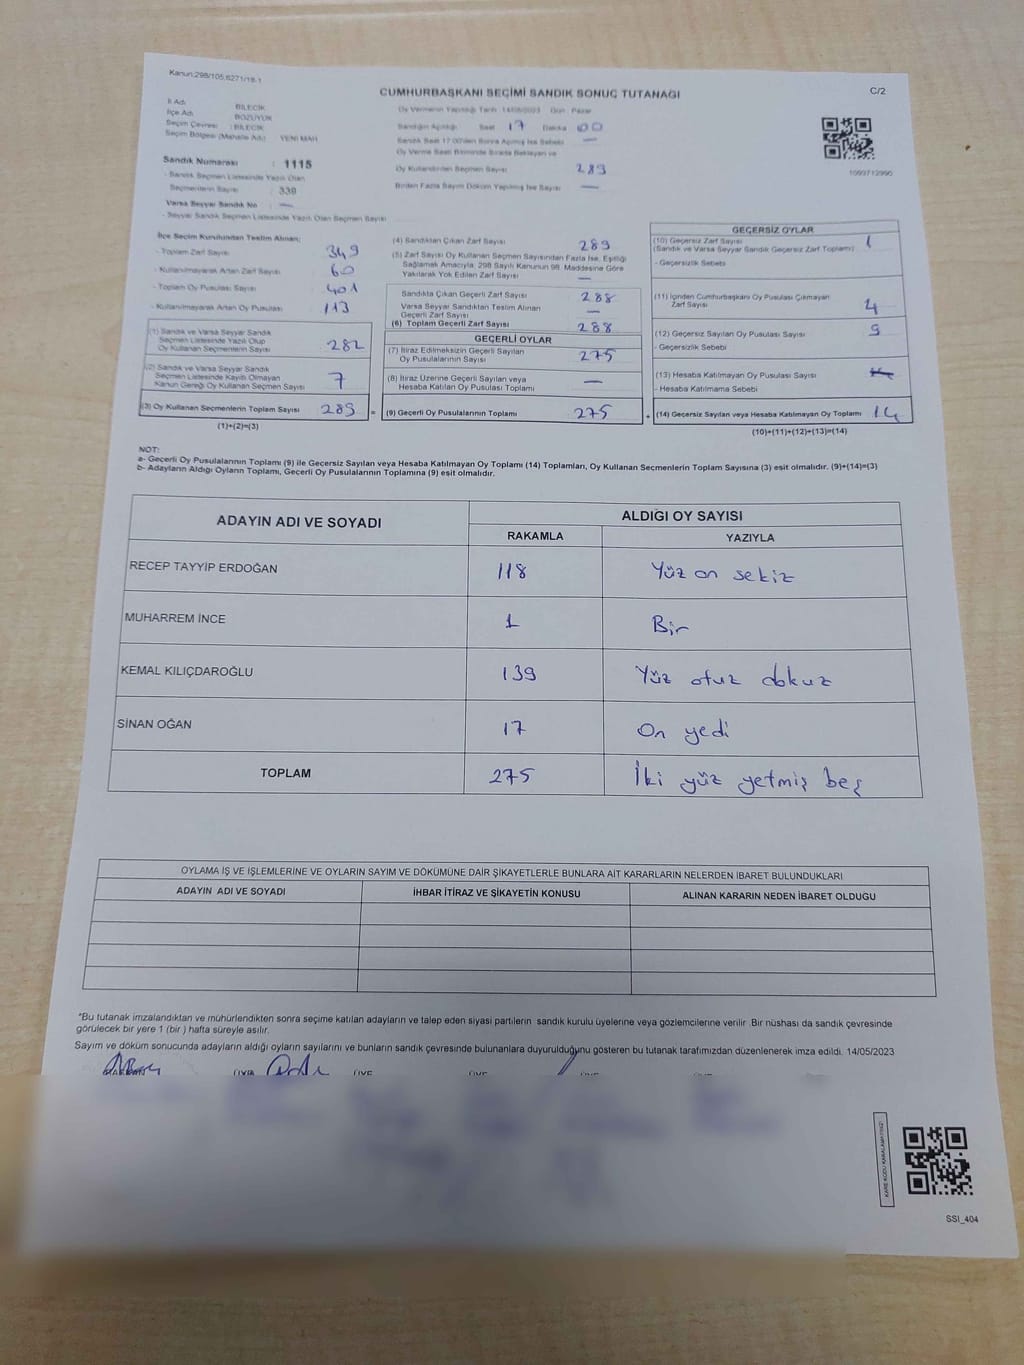 Kanun:298/105,6271/18-1
C/2
CUMHURBAŞKANI SEÇİMİ SANDIK SONUÇ TUTANAĞI
İl Adı BİLECİK
İlçe Adı BOZÜYÜK
Seçim Çevresi : BİLECİK
Seçim Bölgesi (Mahalle Adı) YENİ MAH
Sandık Numarası : 1115
- Sandık Seçmen Listesinde Yazılı Olan
Seçmenlerin Sayısı : 339
Varsa Seyyar Sandık No : —
- Seyyar Sandık Seçmen Listesinde Yazılı Olan Seçmen Sayısı
Oy Vermenin Yapıldığı Tarih : 14/05/2023 Gün : Pazar
Sandığın Açıldığı Saat 17 Dakika 00
Sandık Saat 17:00'den Sonra Açılmış İse Sebebi —
Oy Verme Saati Bitiminde Sırada Bekleyen ve
Oy Kullandırılan Seçmen Sayısı 289
Birden Fazla Sayım Döküm Yapılmış İse Sayısı —
1099712990
İlçe Seçim Kurulundan Teslim Alınan;
- Toplam Zarf Sayısı 349
- Kullanılmayarak Artan Zarf Sayısı 60
- Toplam Oy Pusulası 401
- Kullanılmayarak Artan Oy Pusulası 113
(1) Sandık ve Varsa Seyyar Sandık
Seçmen Listesinde Yazılı Olup
Oy Kullanan Seçmenlerin Sayısı 282
(2) Sandık ve Varsa Seyyar Sandık
Seçmen Listesinde Kayıtlı Olmayan
Kanun Gereği Oy Kullanan Seçmen Sayısı 7
(3) Oy Kullanan Seçmenlerin Toplam Sayısı 289 =
(1)+(2)=(3)
(4) Sandıktan Çıkan Zarf Sayısı 289
(5) Zarf Sayısı Oy Kullanan Seçmen Sayısından Fazla İse, Eşitliği
Sağlamak Amacıyla, 298 Sayılı Kanunun 98. Maddesine Göre
Yakılarak Yok Edilen Zarf Sayısı —
Sandıkta Çıkan Geçerli Zarf Sayısı 288
Varsa Seyyar Sandıktan Teslim Alınan
Geçerli Zarf Sayısı —
(6) Toplam Geçerli Zarf Sayısı 288
GEÇERLİ OYLAR
(7) İtiraz Edilmeksizin Geçerli Sayılan
Oy Pusulalarının Sayısı 275
(8) İtiraz Üzerine Geçerli Sayılan veya
Hesaba Katılan Oy Pusulası Toplamı —
(9) Geçerli Oy Pusulalarının Toplamı 275 +
GEÇERSİZ OYLAR
(10) Geçersiz Zarf Sayısı 1
(Sandık ve Varsa Seyyar Sandık Geçersiz Zarf Toplamı)
- Geçersizlik Sebebi
(11) İçinden Cumhurbaşkanı Oy Pusulası Çıkmayan
Zarf Sayısı 4
(12) Geçersiz Sayılan Oy Pusulası Sayısı 9
- Geçersizlik Sebebi
(13) Hesaba Katılmayan Oy Pusulası Sayısı
- Hesaba Katılmama Sebebi
(14) Geçersiz Sayılan veya Hesaba Katılmayan Oy Toplamı 14
(10)+(11)+(12)+(13)=(14)
NOT:
a- Geçerli Oy Pusulalarının Toplamı (9) ile Geçersiz Sayılan veya Hesaba Katılmayan Oy Toplamı (14) Toplamları, Oy Kullanan Seçmenlerin Toplam Sayısına (3) eşit olmalıdır. (9)+(14)=(3)
b- Adayların Aldığı Oyların Toplamı, Geçerli Oy Pusulalarının Toplamına (9) eşit olmalıdır.
ADAYIN ADI VE SOYADI
ALDIĞI OY SAYISI
RAKAMLA YAZIYLA
RECEP TAYYİP ERDOĞAN 118 Yüz on sekiz
MUHARREM İNCE 1 Bir
KEMAL KILIÇDAROĞLU 139 Yüz otuz dokuz
SİNAN OĞAN 17 On yedi
TOPLAM 275 İki yüz yetmiş beş
OYLAMA İŞ VE İŞLEMLERİNE VE OYLARIN SAYIM VE DÖKÜMÜNE DAİR ŞİKAYETLERLE BUNLARA AİT KARARLARIN NELERDEN İBARET BULUNDUKLARI
ADAYIN ADI VE SOYADI İHBAR İTİRAZ VE ŞİKAYETİN KONUSU ALINAN KARARIN NEDEN İBARET OLDUĞU
*Bu tutanak imzalandıktan ve mühürlendikten sonra seçime katılan adayların ve talep eden siyasi partilerin sandık kurulu üyelerine veya gözlemcilerine verilir .Bir nüshası da sandık çevresinde
görülecek bir yere 1 (bir ) hafta süreyle asılır.
Sayım ve döküm sonucunda adayların aldığı oyların sayılarını ve bunların sandık çevresinde bulunanlara duyurulduğunu gösteren bu tutanak tarafımızdan düzenlenerek imza edildi. 14/05/2023
KARE KODU KARALAMAYINIZ!
SSI_404